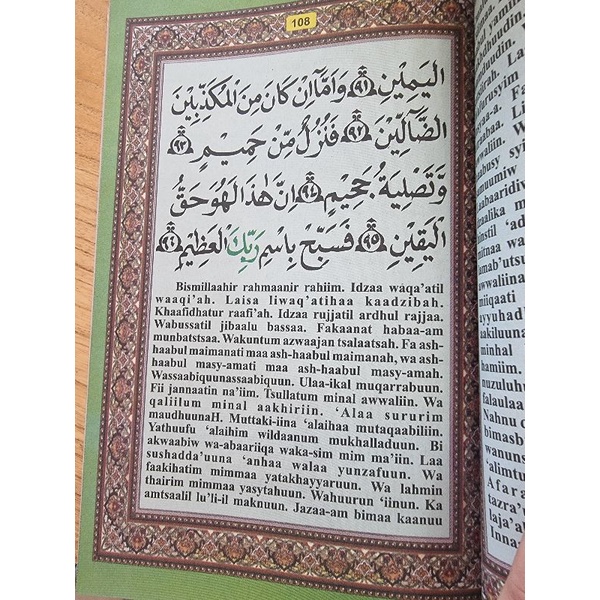 108
الْيَمِيْنِ ﴿٩١﴾ وَاَمَّآ اِنْ كَانَ مِنَ الْمُكَذِّبِيْنَ
الضَّآلِّيْنَ ﴿٩٢﴾ فَنُزُلٌ مِّنْ حَمِيْمٍ ﴿٩٣﴾
وَّتَصْلِيَةُ جَحِيْمٍ ﴿٩٤﴾ اِنَّ هٰذَا لَهُوَ حَقُّ
الْيَقِيْنِ ﴿٩٥﴾ فَسَبِّحْ بِاسْمِ رَبِّكَ الْعَظِيْمِ ﴿٩٦﴾
Bismillaahir rahmaanir rahiim. Idzaa waqa’atil
waaqi’ah. Laisa liwaq’atihaa kaadzibah.
Khaafidhatur raafi’ah. Idzaa rujjatil ardhul rajjaa.
Wabussatil jibaalu bassaa. Fakaanat habaa-am
munbatstsaa. Wakuntum azwaajan tsalaatsah. Fa ash-
haabul maimanati maa ash-haabul maimanah, wa ash-
haabul masy-amati maa ash-haabul masy-amah.
Wassaabiquunassaabiquun. Ulaa-ikal muqarrabuun.
Fii jannaatin na’iim. Tsullatum minal awwaliin. Wa
qaliilum minal aakhiriin. ‘Alaa sururim
maudhuunaH. Muttaki-iina ‘alaihaa mutaqaabiliin.
Yathuufu ‘alaihim wildaanum mukhalladuun. Bi
akwaabiw wa-abaariiqa waka-sim mim ma’iin. Laa
sushadda’uuna ‘anhaa walaa yunzafuun. Wa
faakihatim mimmaa yatakhayyaruun. Wa lahmin
thairim mimmaa yasytahuun. Wahuurun ‘iinun. Ka
amtsaalil lu’li-il maknuun. Jazaa-am bimaa kaanuu